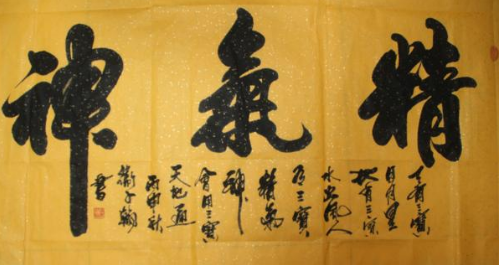 精氣神
天有三寶
日月星
地有三寶
水火風人
有三寶
精氣
神
會用三寶
天地通
丙申秋
書